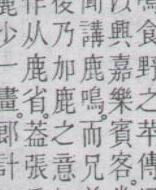 食野之苹。傳
興嘉樂賓客。
講鹿鳴。而兄
後乃加鹿之意
作从鹿省。葢張
少一畫。郎計